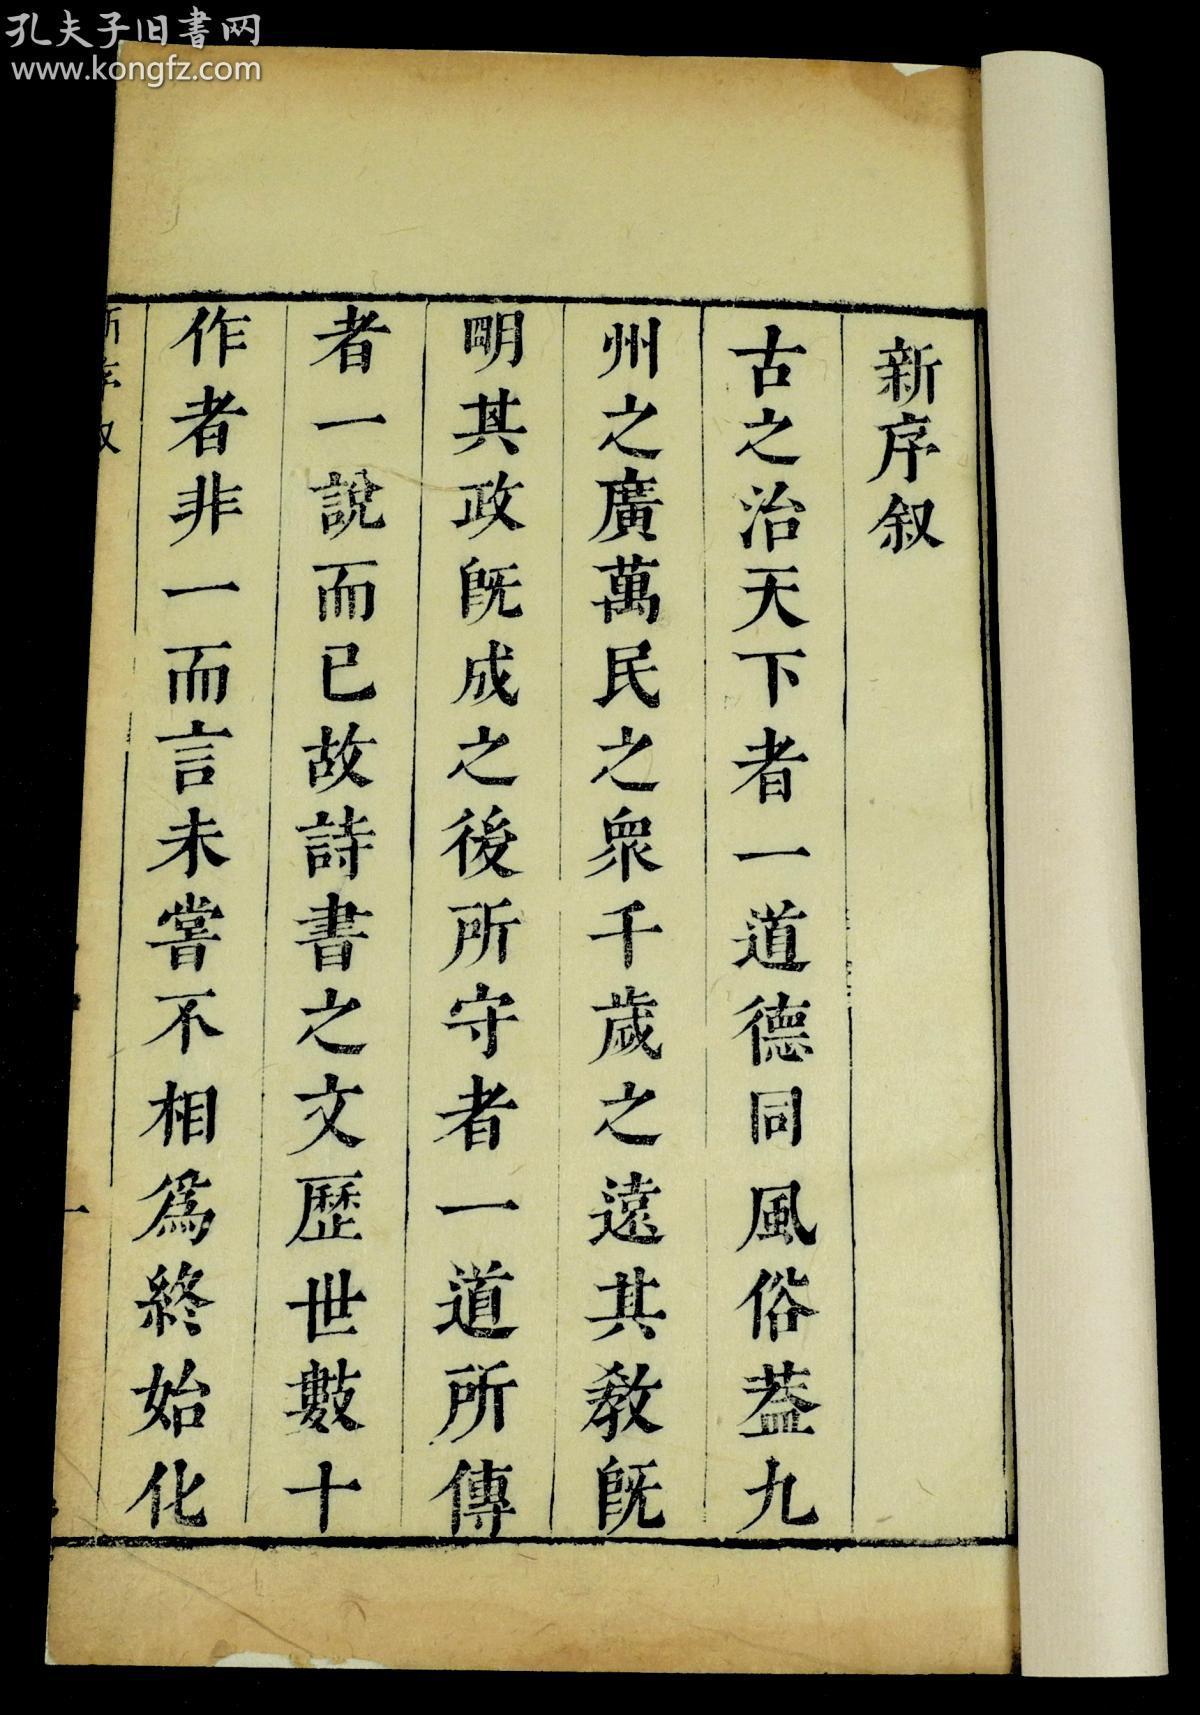 孔夫子旧書网
www.kongfz.com
新序叙
古之治天下者一道德同風俗葢九
州之廣萬民之衆千歲之遠其敎旣
明其政旣成之後所守者一道所傳
者一說而已故詩書之文歷世數十
作者非一而言未嘗不相爲終始化
新序叙
一